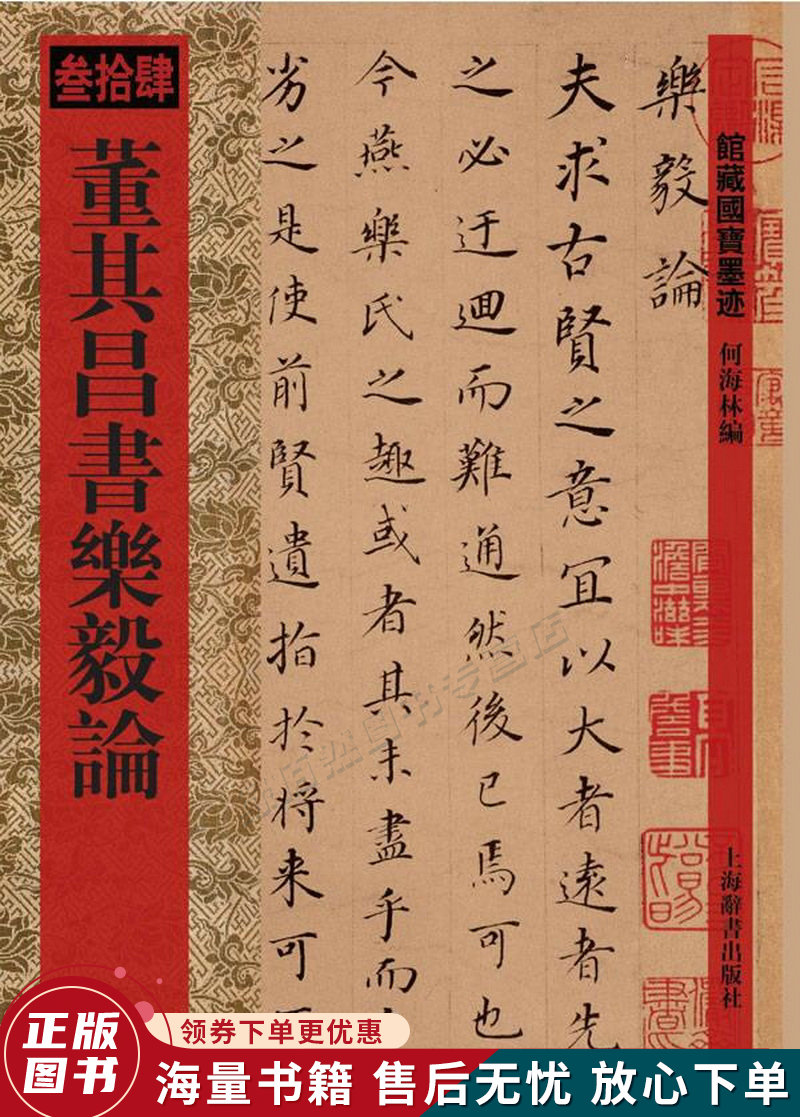 叁拾肆
董其昌書樂毅論
館藏國寶墨迹
何海林編
上海辭書出版社
樂毅論
夫求古賢之意冝以大者遠者先
之必迂迴而難通然後已焉可也
今燕樂氏之趣或者其未盡乎而
劣之是使前賢遺指於将来可
正版
图书
领券下单更优惠
海量书籍 售后无忧 放心下单